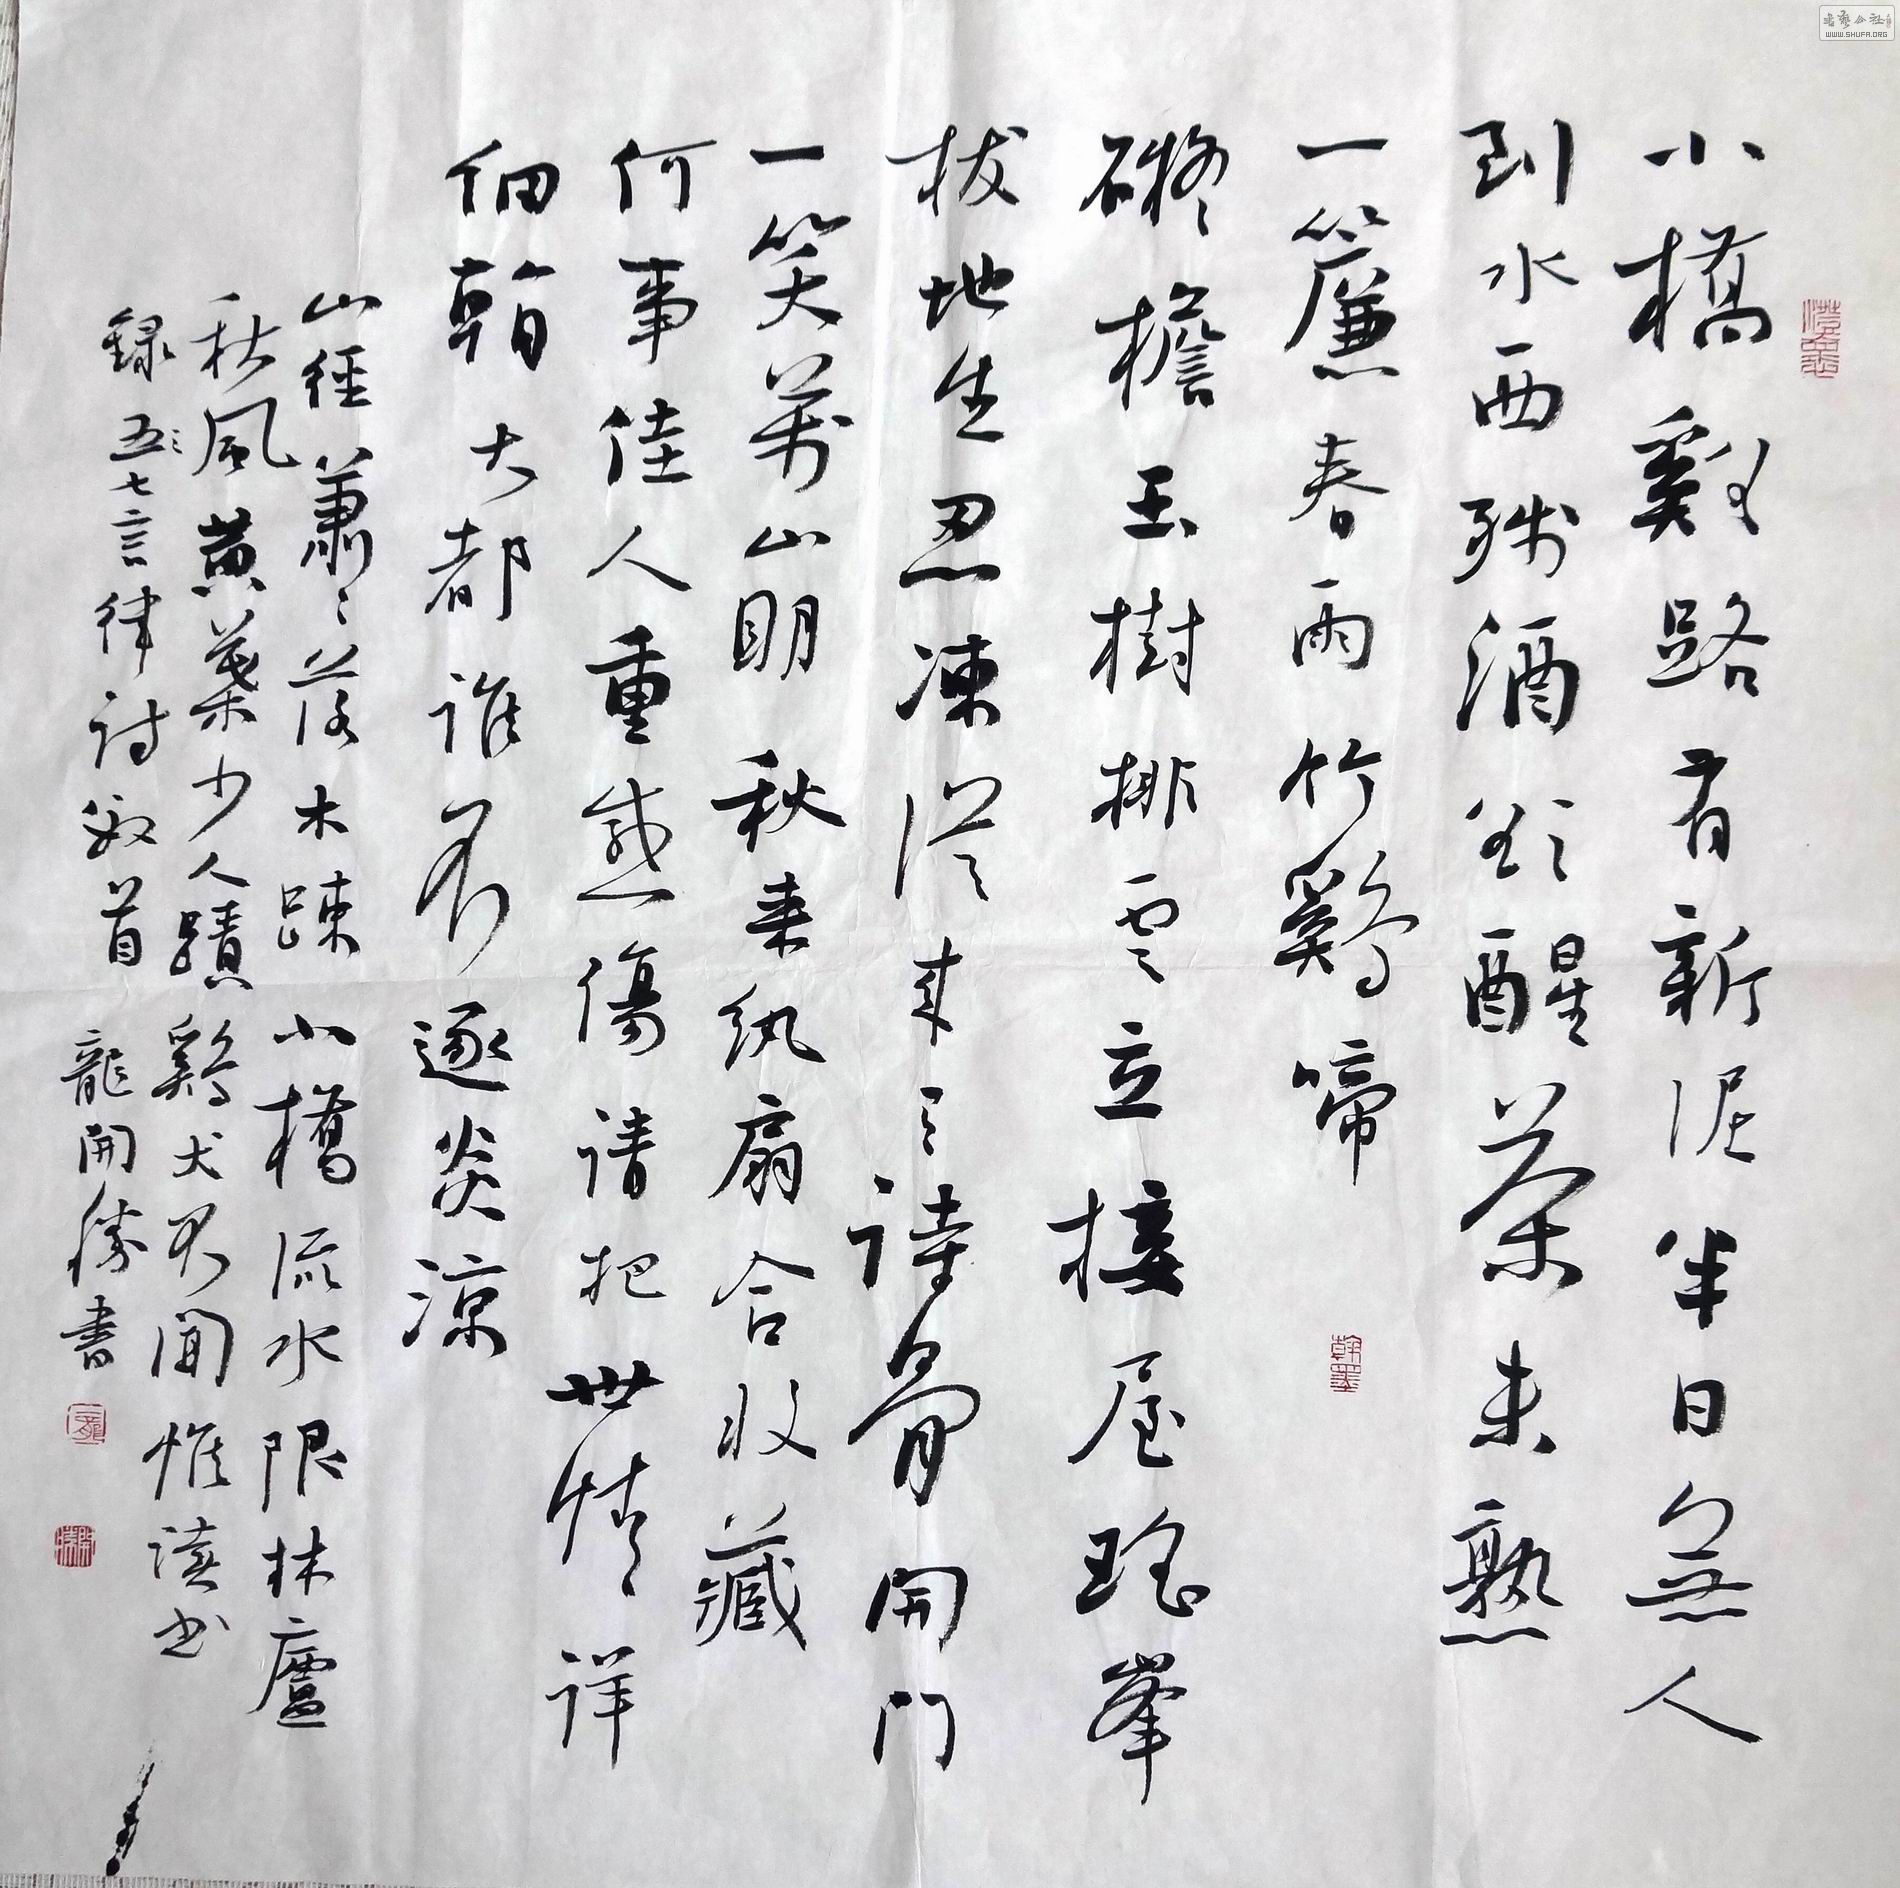 小橋谿路有新泥半日無人
到水西殘酒欲醒茶未熟
一簾春雨竹鷄啼
礙檐玉樹排雲立接屋瑤峯
拔地生忍凍從来三詩骨開門
一笑萬山明秋来紈扇合收藏
何事佳人重感傷請把世情詳
細看大都誰不逐炎涼
山徑蕭〻落木踈小橋流水限林廬
秋風黃葉少人蹟鷄犬不聞惟讀书
録五七言律詩数首 龍開勝書
翰墨
WWW.SHUFA.ORG